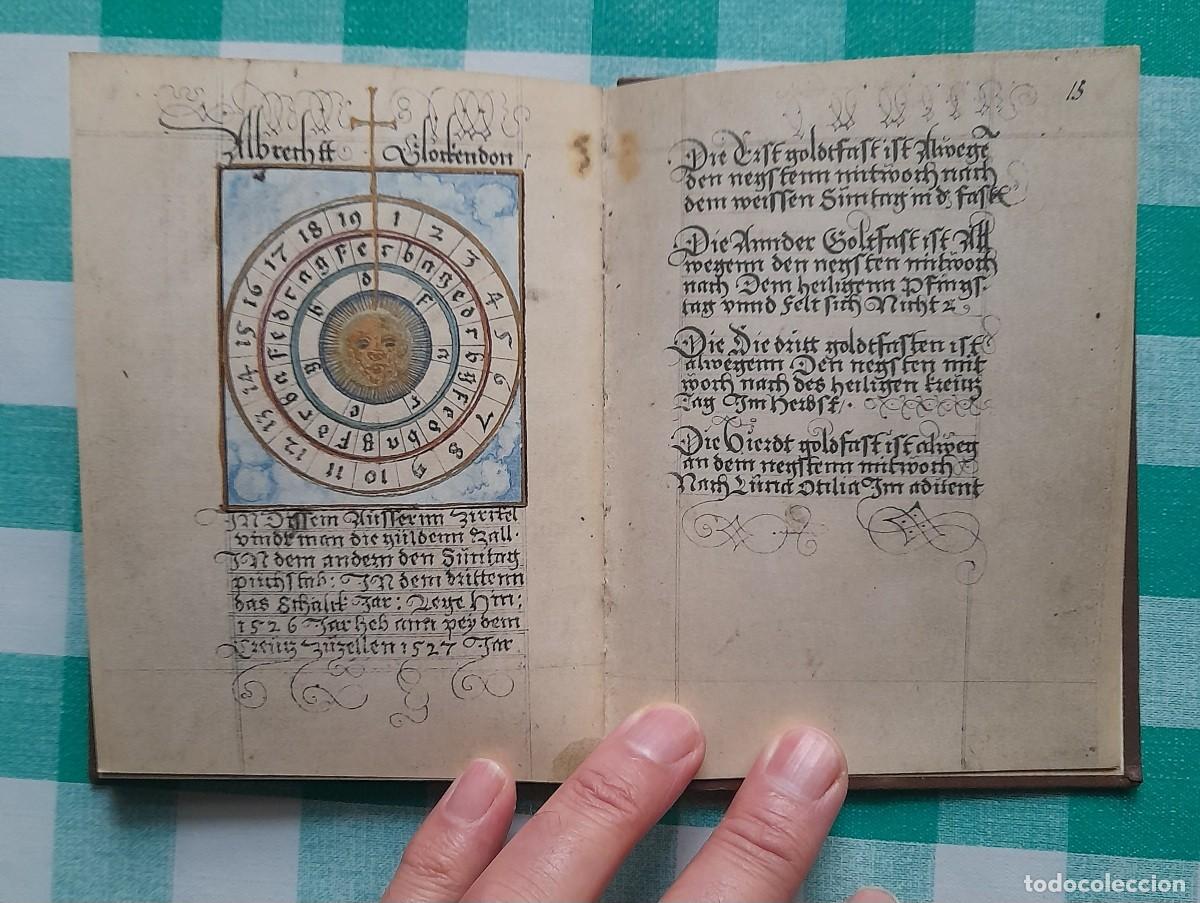 Albrecht Glockendon
19 1 2 3 4 5 6 7 8 9 10 11 12 13 14 15 16 17 18
In Dissem Aussernn Zirckel
vindt man die güldenn Zall.
In dem andern den Sūntag
puchstab: In dem drittenn
das Schalck Jar: Lege hin:
1526 Jar heb ann pey dem
Creütz zūzellen 1527 Jar
15
Die Erst goldtfast ist Alwege
den negstenn mitwoch nach
dem weissen Sūntag in d, fast
Die Annder Goltfast ist All
wegenn den negsten mitwoch
nach Dem heiligenn Pfings-
tag vnnd felt sich Nicht
Die Die dritt goldtfasten ist
alwegenn Den negsten mit
woch nach des heiligen kreutz
Tag Im Herbst
Die Vierdt goldfast ist alweg
an dem negstenn mitwoch
Nach Lucia Otilia Im aduent
todocoleccion